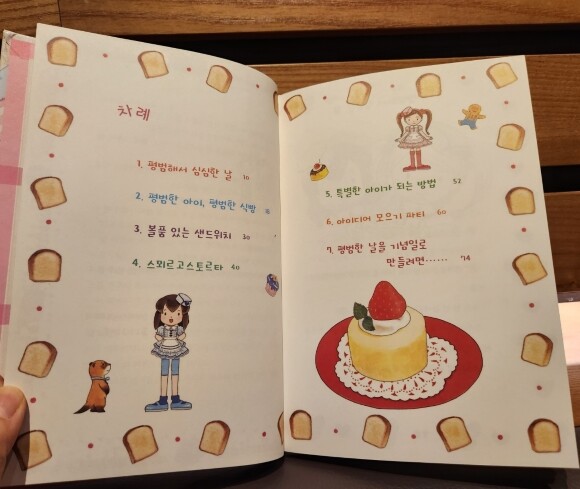 차례
1. 평범해서 심심한 날 10
2. 평범한 아이, 평범한 식빵 16
3. 볼품 있는 샌드위치 30
4. 스뫼르고스토르타 40
5. 특별한 아이가 되는 방법 52
6. 아이디어 모으기 파티 60
7. 평범한 날을 기념일로
만들려면…… 74